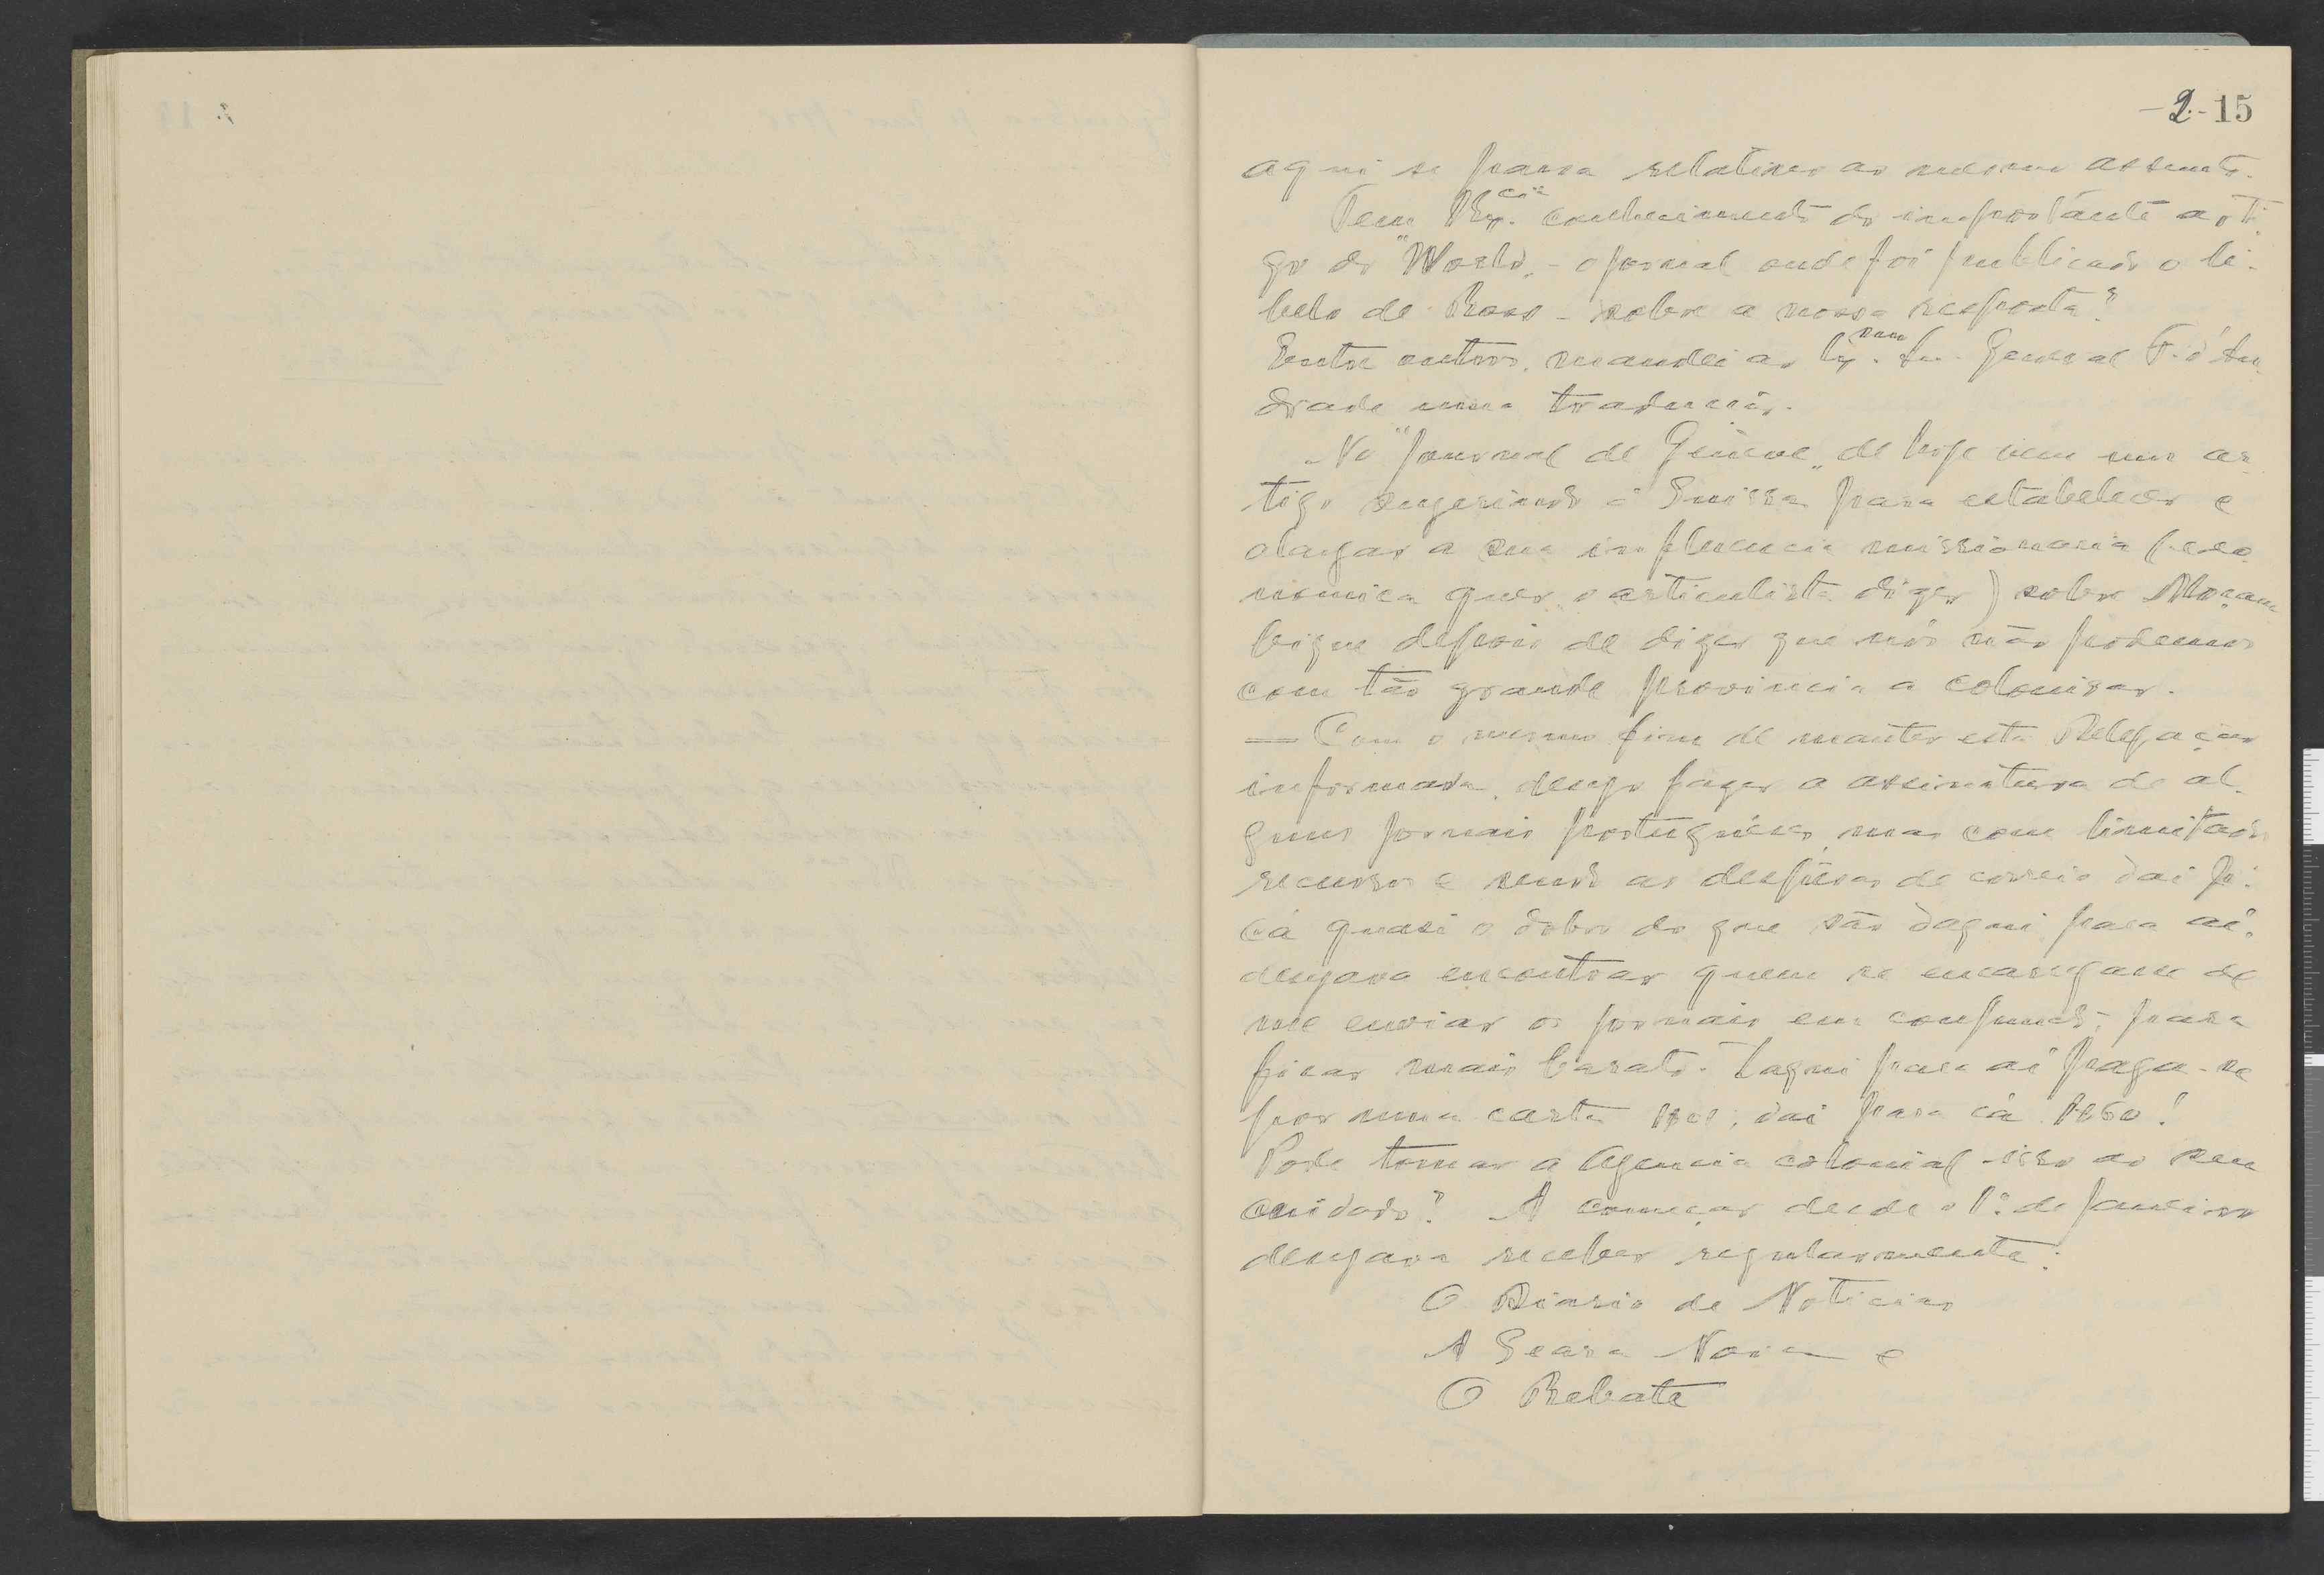 -2-15
aqui se passa relativo ao mesmo assunto.
Tem V. Ex.cia conhecimento do importante arti
go do "World" - o jornal onde foi publicado o li-
belo de Ross - sobre a nossa resposta?
Entre outros, mandei ao Ex.mo Sr. General F. d'An
drade uma traducção.
No "Journal de Genève" de hoje vem um ar
tigo sugerindo á Suissa para estabelecer e
alargar a sua influencia missionaria (eco
nomica quer o articulista dizer) sobre Moçam
bique depois de dizer que nós não podemos
com tão grande provincia a colonisar.
= Com o mesmo fim de manter esta Delegação
informada, desejo pagar a assinatura de al-
guns jornais portuguêses, mas com limitados
recursos e sendo as despêsas de correio dai p.
cá quasi o dobro do que são daqui para aí,
desejava encontrar quem se encarregasse de
me enviar os jornais em conjunto, para
ficar mais barato. Daqui para aí paga-se
por uma carta dai para cá 1$60!
Pode tomar a Agencia colonial isso ao seu
cuidado? A começar desde o 1º de Janeiro
desejava receber regularmente:
O Diario de Noticias
A Seara Nova e
O Rebate